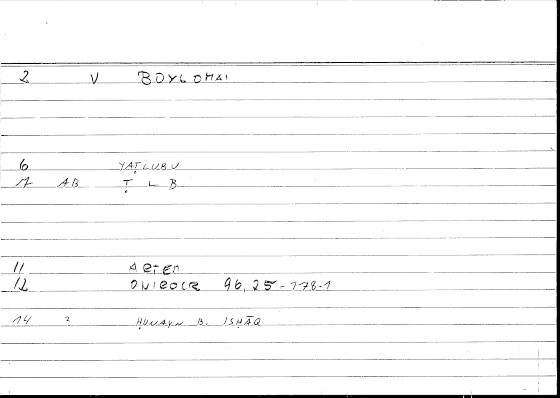 2 V BOYLOMAI
6 YAṬLUBU
7 AB Ṭ L B
11 ARTEM
12 ONIROCR 96,25-178.1
14 ? ḤUNAYN B. ISḤĀQ